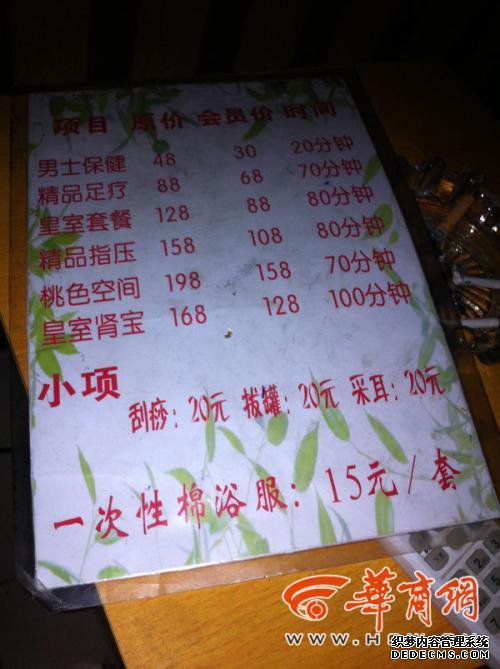 项目 原价 会员价 时间
男士保健 48 30 20分钟
精品足疗 88 68 70分钟
皇室套餐 128 88 80分钟
精品指压 158 108 80分钟
桃色空间 198 158 70分钟
皇室肾宝 168 128 100分钟
小项
刮痧：20元 拔罐：20元 采耳：20元
一次性棉浴服：15元/套
华商网
织梦内容管理系统
DEDECMS.COM